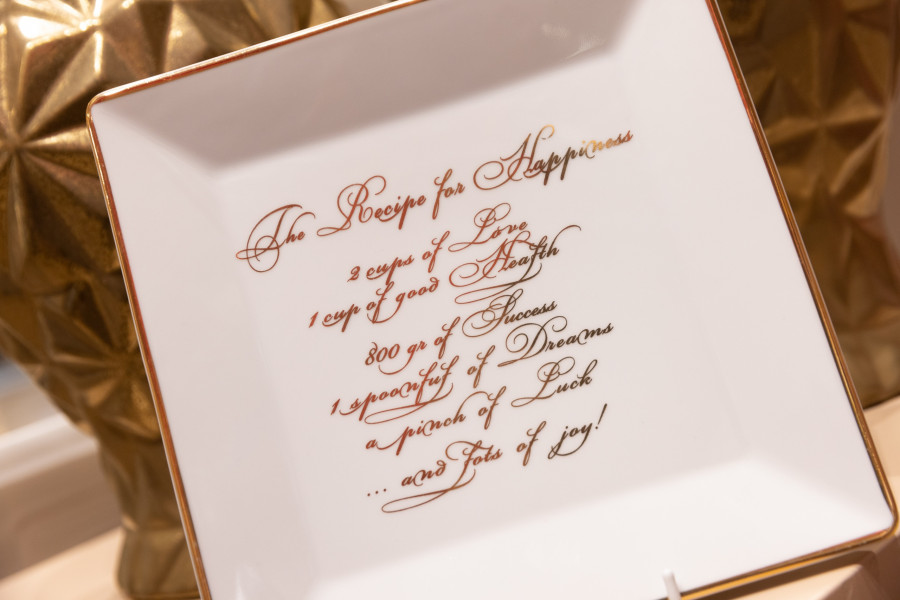 The Recipe for Happiness
2 cups of Love
1 cup of good Health
800 gr of Success
1 spoonful of Dreams
a pinch of Luck
... and lots of joy!